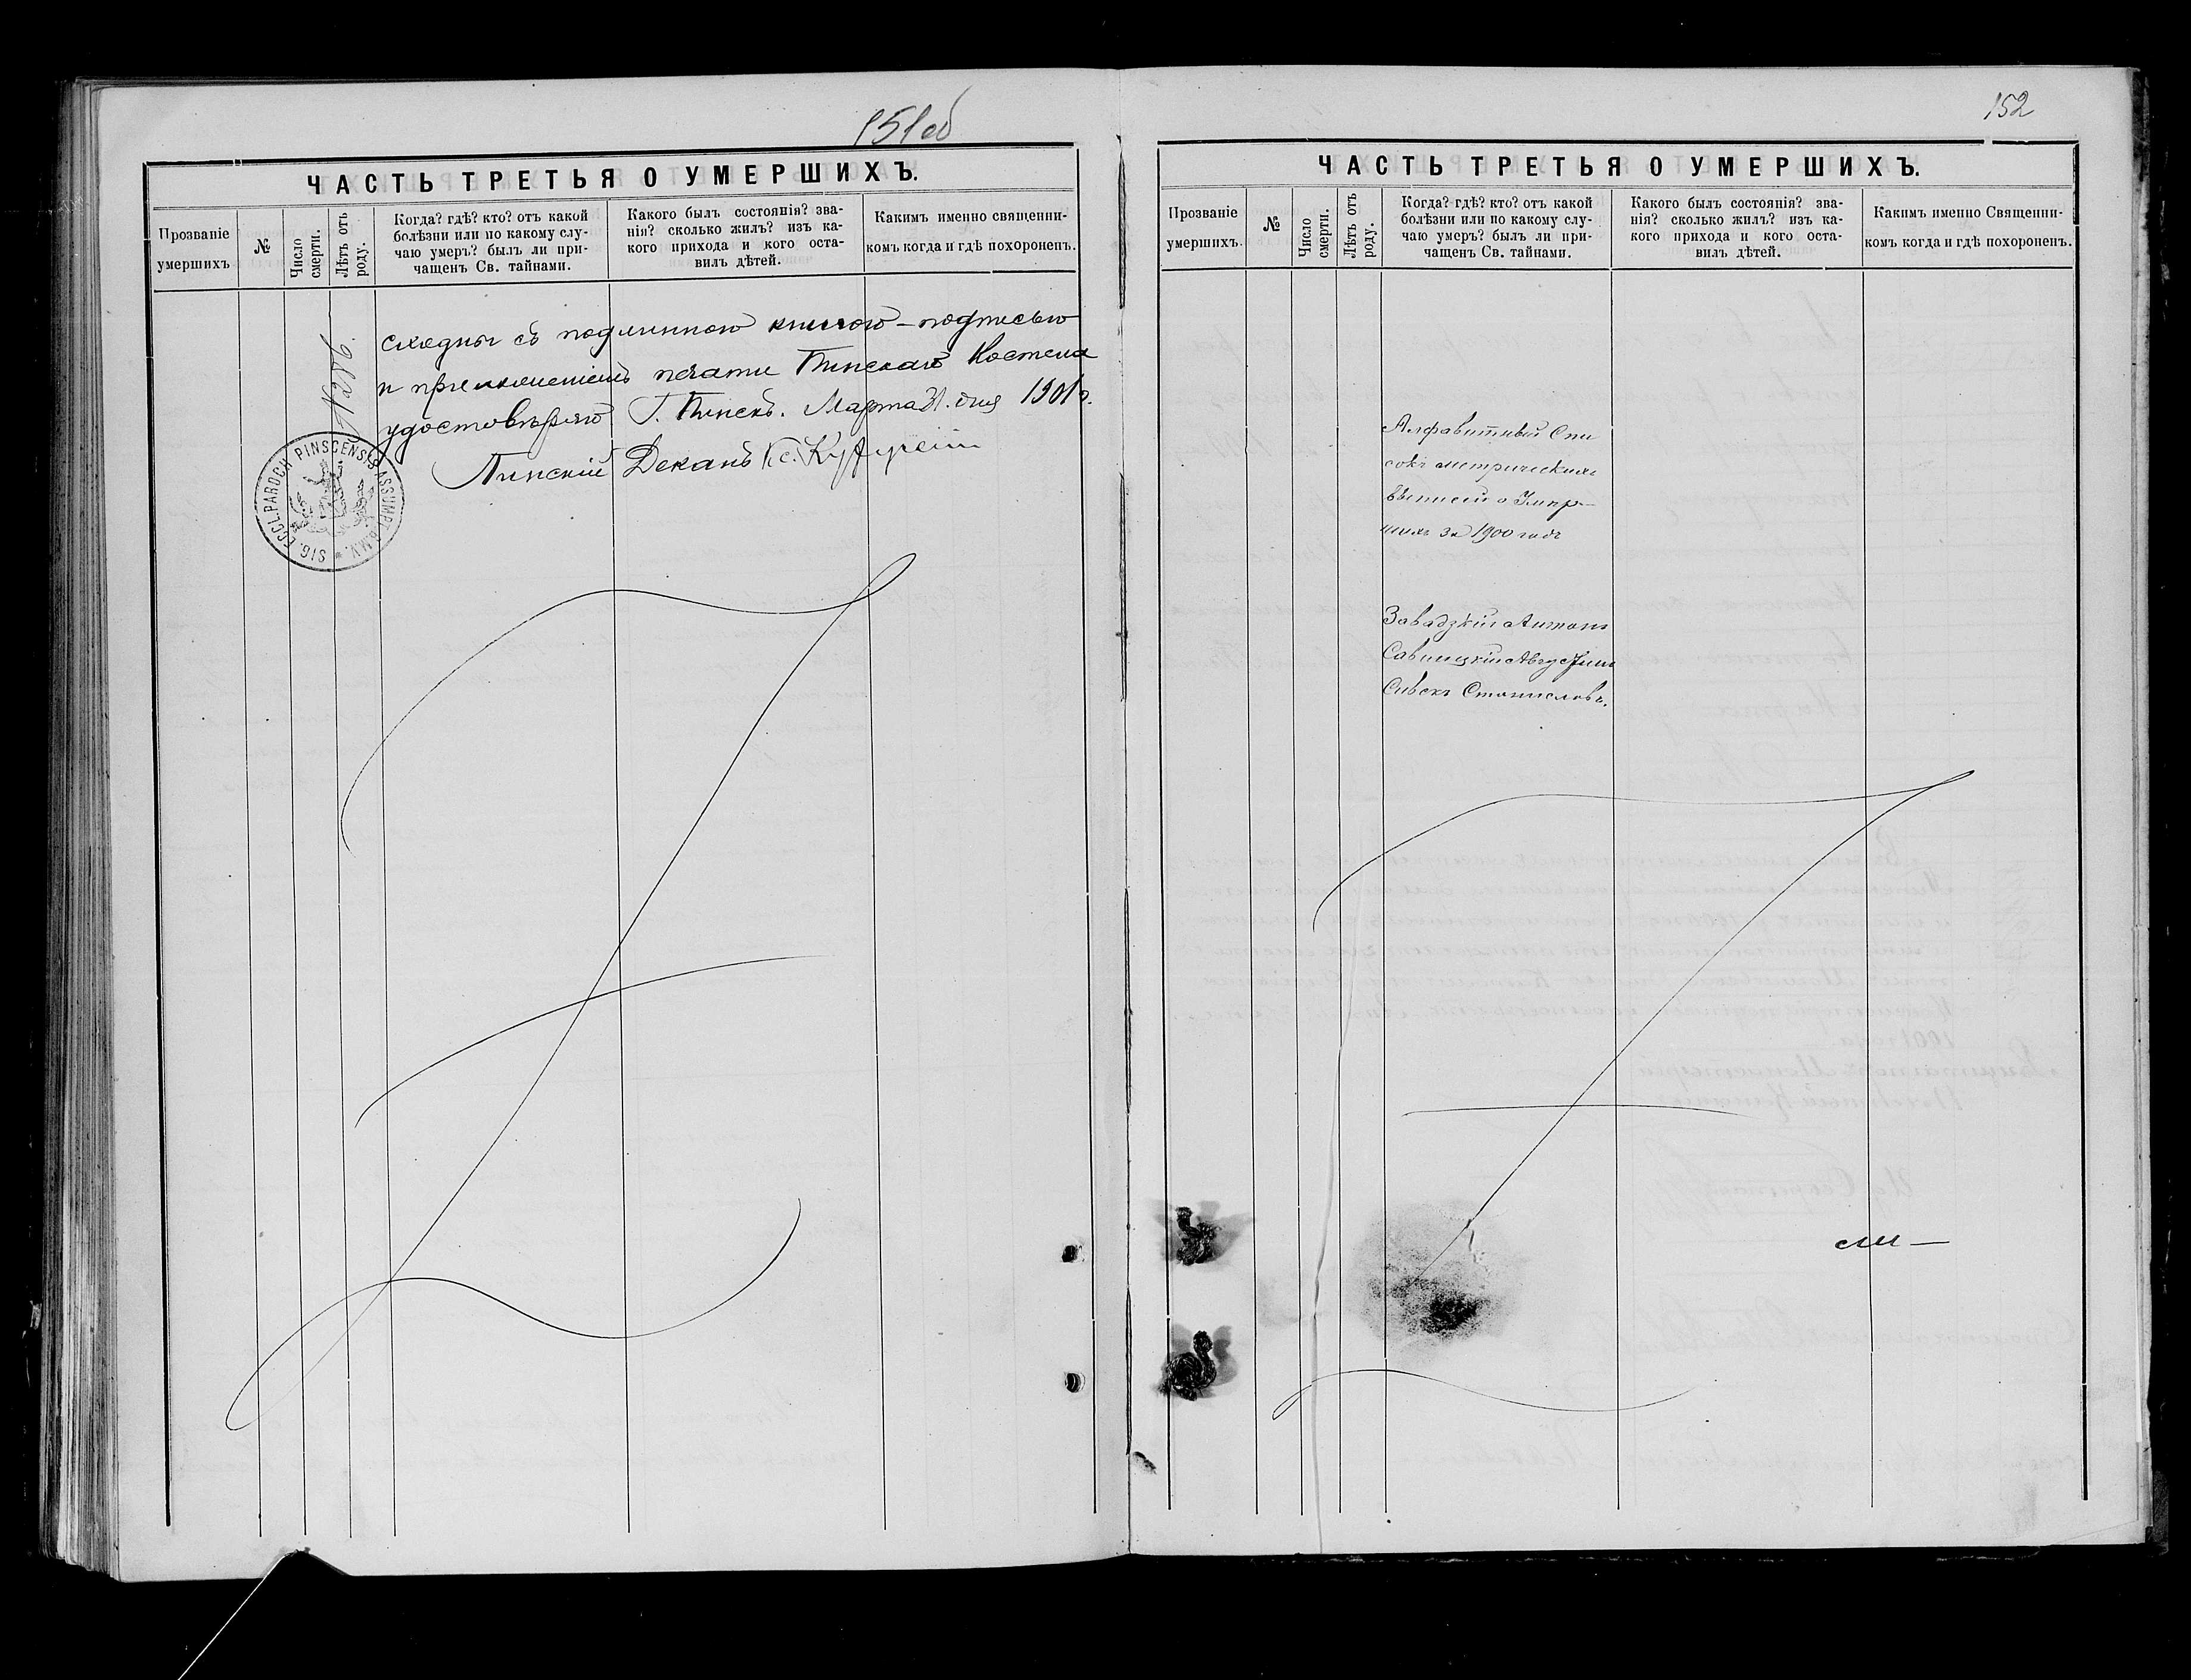 151 об
ЧАСТЬ ТРЕТЬЯ О УМЕРШИХЪ.
Прозваніе
умершихъ
№
Число
смерти.
Лѣтъ отъ
роду.
Когда? гдѣ? кто? отъ какой
болѣзни или по какому слу-
чаю умеръ? былъ ли при-
чащенъ Св. тайнами.
Какого былъ состоянія? зва-
нія? сколько жилъ? изъ ка-
кого прихода и кого оста-
вилъ дѣтей.
Какимъ именно священни-
комъ когда и гдѣ похороненъ.
сходны съ подлинною книгою – подписью
и приложеніемъ печати Пинскаго Костела
удостовѣряю Г. Пинскъ. Марта 31. дня 1901 г.
Пинскій Деканъ Кс.
SIG. ECCL. PAROCH PINSCENSIS ASSUMPT. B.M.V. *
152
ЧАСТЬ ТРЕТЬЯ О УМЕРШИХЪ.
Прозваніе
умершихъ.
№
Число
смерти.
Лѣтъ отъ
роду.
Когда? гдѣ? кто? отъ какой
болѣзни или по какому слу-
чаю умеръ? былъ ли при-
чащенъ Св. тайнами.
Какого былъ состоянія? зва-
нія? сколько жилъ? изъ ка-
кого прихода и кого оста-
вилъ дѣтей.
Какимъ именно Священни-
комъ когда и гдѣ похороненъ.
Алфавитный Спи
сокъ метрическихъ
выписей о Умер-
шихъ за 1900 годъ
Завадзкій Антонъ
Савицкій Августинъ
Сивекъ Станиславъ.